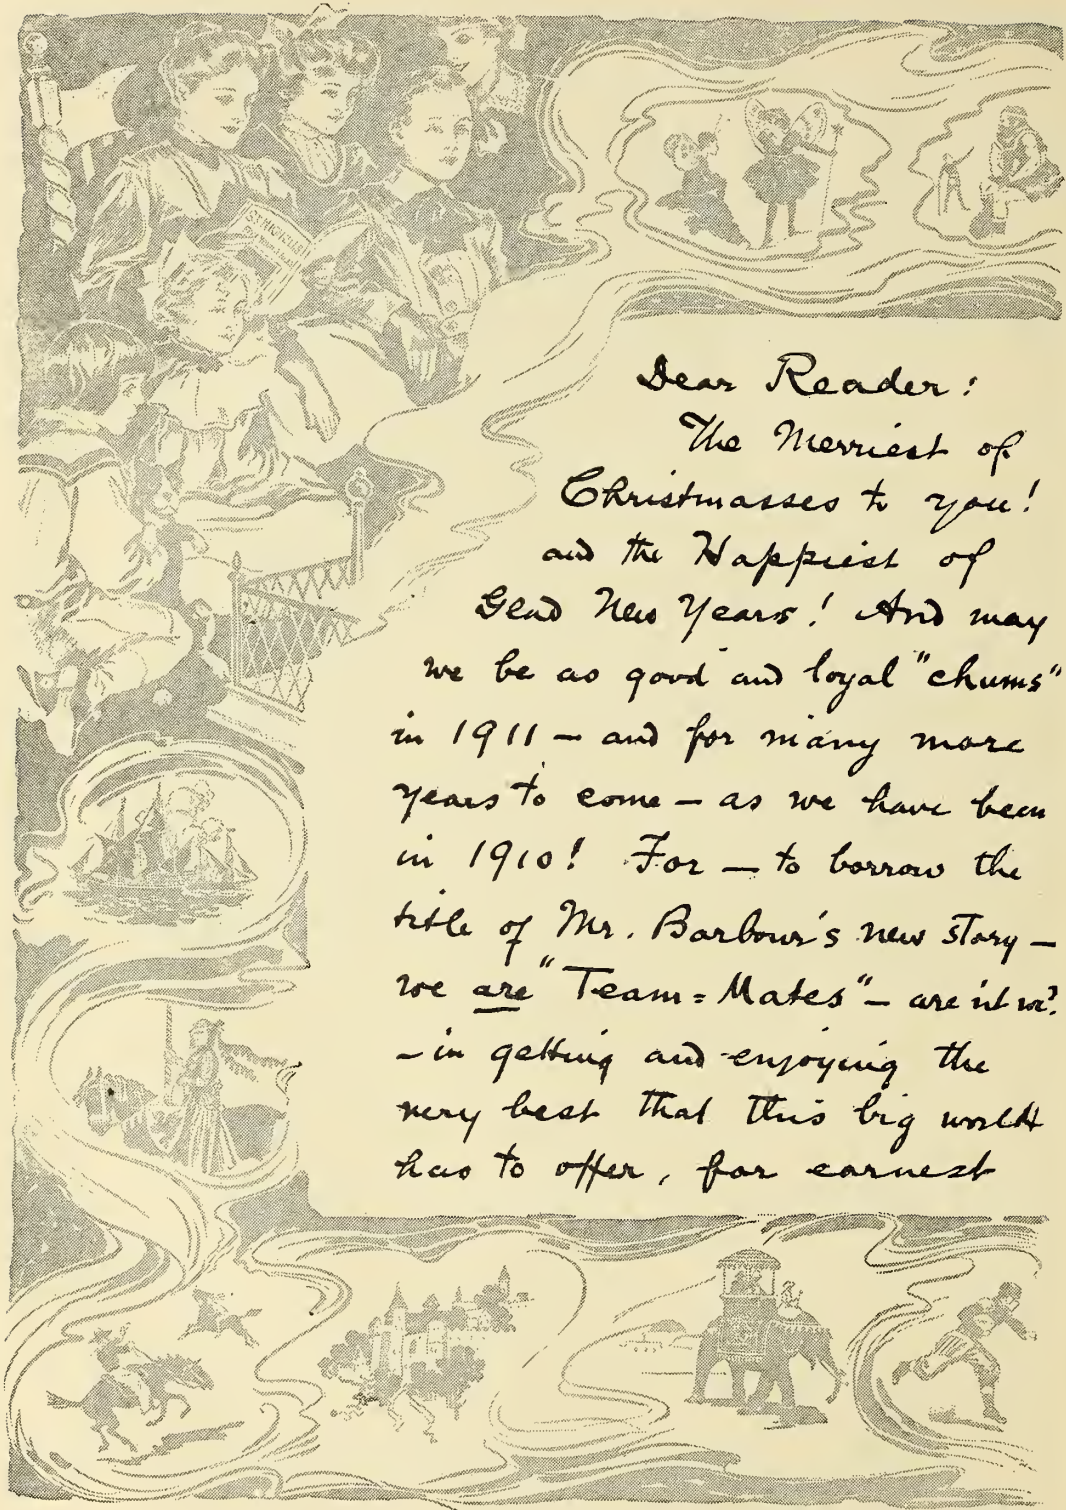 ST. NICHOLAS
Dear Reader:
The Merriest of
Christmasses to you!
and the Happiest of
Glad New Years! And may
we be as good and loyal "chums"
in 1911 — and for many more
years to come — as we have been
in 1910! For — to borrow the
title of Mr. Barbour's new story —
we are "Team=Mates" — are n't we?
— in getting and enjoying the
very best that this big world
has to offer, for earnest